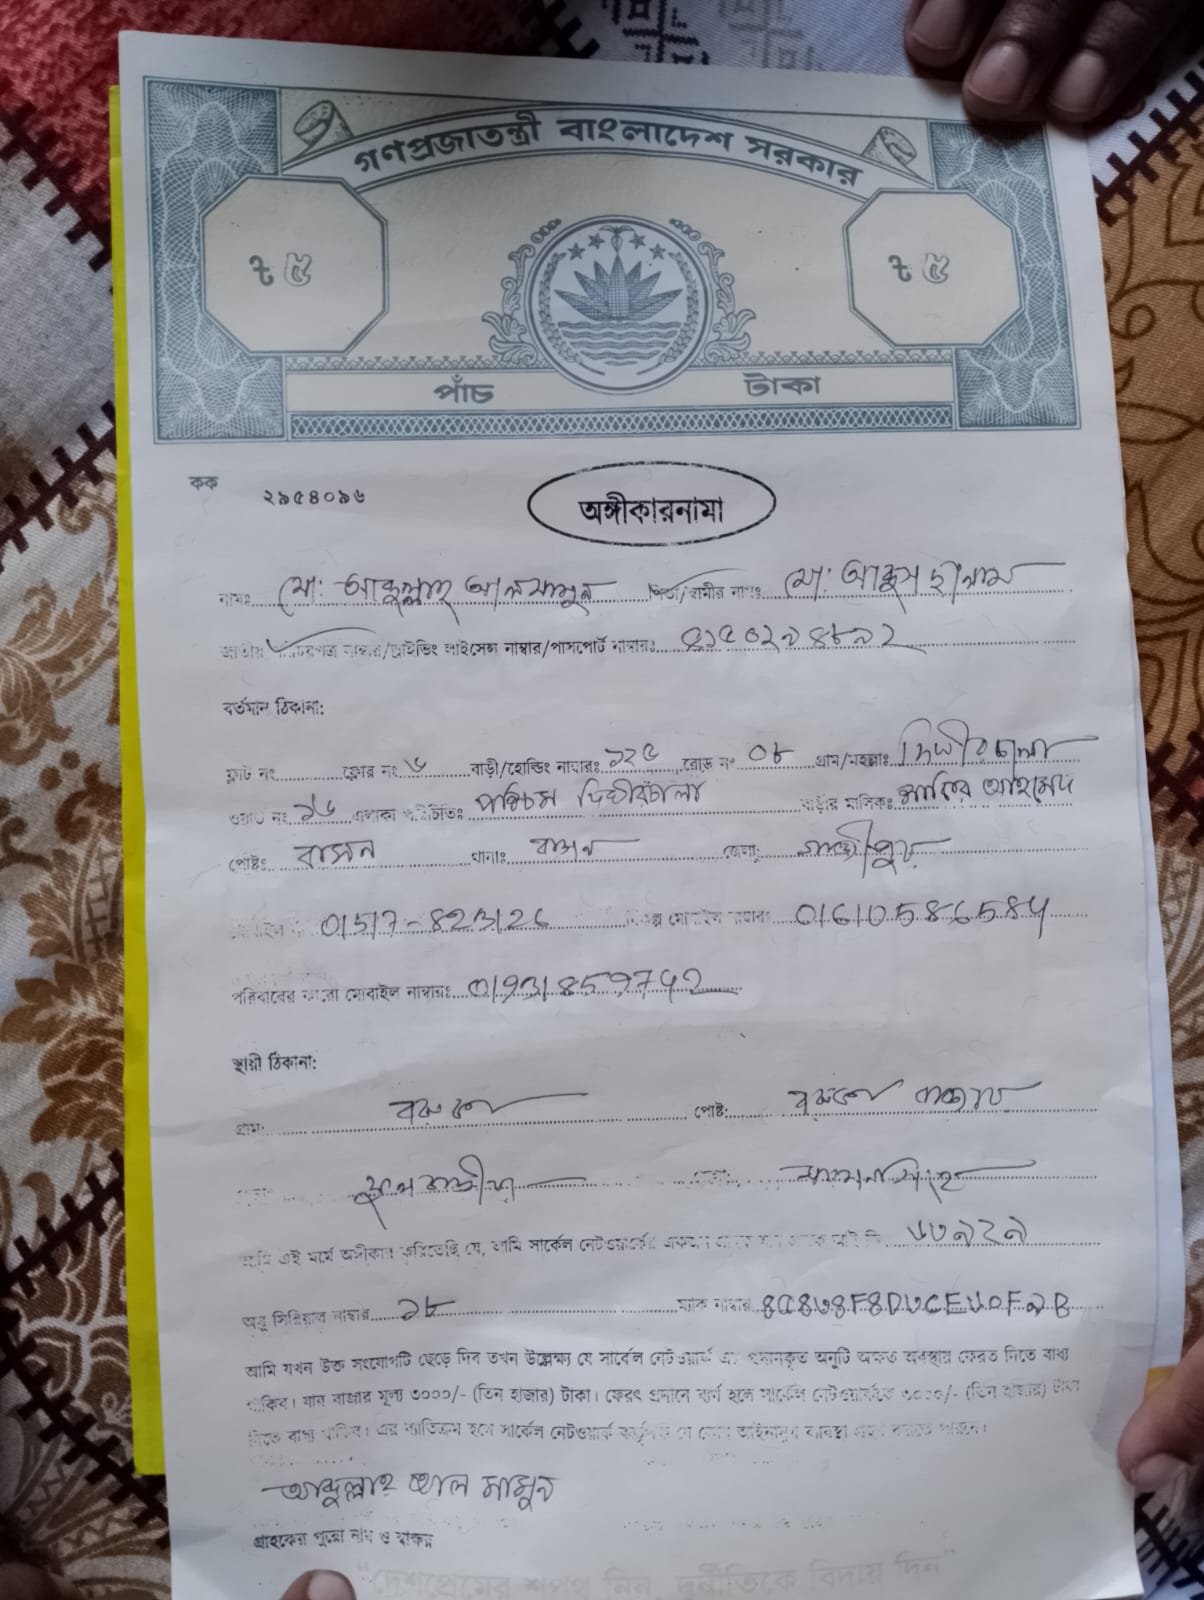 গণপ্রজাতন্ত্রী বাংলাদেশ সরকার
৳ ৫ ৳ ৫
পাঁচ টাকা
কক ২৯৫৪০৯৬
অঙ্গীকারনামা
নামঃ মো: আব্দুল্লাহ আল মামুন পিতা/স্বামীর নামঃ মো: আব্দুস ছালাম
জাতীয় পরিচয়পত্র নাম্বার/ড্রাইভিং লাইসেন্স নাম্বার/পাসপোর্ট নাম্বারঃ
বর্তমান ঠিকানা:
ফ্লাট নং ফ্লোর নং ৬ বাড়ী/হোল্ডিং নাম্বারঃ ১২৫ রোড নং ০৮ গ্রাম/মহল্লাঃ দিঘীরচালা
ওয়ার্ড নং ১৬ এলাকা পরিচিতিঃ পশ্চিম দিঘীরচালা বাড়ীর মালিকঃ আহমেদ
পোষ্টঃ বাসন থানাঃ বাসন জেলা: গাজীপুর
01517-823126 মোবাইল নাম্বারঃ 01610586584
পরিবারের কারো মোবাইল নাম্বারঃ 01931859742
স্থায়ী ঠিকানা:
গ্রাম: পোষ্ট:
জেলা: ময়মনসিংহ
আমি এই মর্মে অঙ্গীকার করিতেছি যে, আমি সার্কেল নেটওয়ার্কের একজন গ্রাহক ৬৩৯২৯
অনু সিরিয়াল নাম্বার ১৮ ম্যাক নাম্বার
আমি যখন উক্ত সংযোগটি ছেড়ে দিব তখন উল্লেক্ষ্য যে সার্কেল নেটওয়ার্ক এর প্রদানকৃত অনুটি অক্ষত অবস্থায় ফেরত দিতে বাধ্য
থাকিব। যার বাজার মূল্য ৩০০০/- (তিন হাজার) টাকা। ফেরৎ প্রদানে ব্যর্থ হলে সার্কেল নেটওয়ার্ককে ৩০০০/- (তিন হাজার) টাকা
দিতে বাধ্য থাকিব। এর ব্যতিক্রম হলে সার্কেল নেটওয়ার্ক কর্তৃপক্ষ যে কোন আইনানুগ ব্যবস্থা গ্রহণ করতে পারিবে।
আব্দুল্লাহ আল মামুন
গ্রাহকের পুরো নাম ও স্বাক্ষর
"দেশপ্রেমের শপথ নিন, দুর্নীতিকে বিদায় দিন"